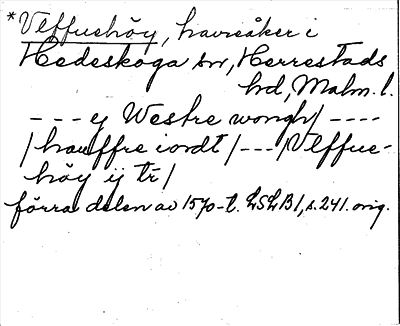 *Vlffuehöy, havreåker i
Hedeskoga sn, Herrestads
hd, Malm. l.
---ej Westre wongh/----
/hauffre iordt/---/Vlffue-
höy ij tr/
förra delen av 1570-t. LSLB1, s. 241. orig.